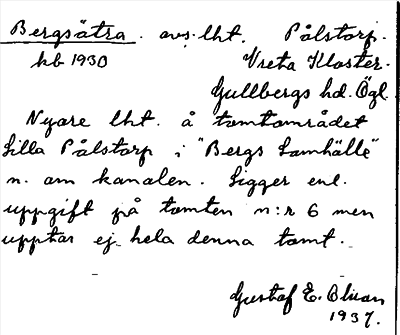 Bergsätra. avs. lht. Pålstorp.
kb 1930 Vreta Kloster.
Gullbergs hd. Ögl.
Nyare lht. å tomtområdet
Lilla Pålstorp i "Bergs Samhälle"
n. om kanalen. Ligger enl.
uppgift på tomten n:r 6 men
upptar ej hela denna tomt.
Gustaf E. Blixan
1937.